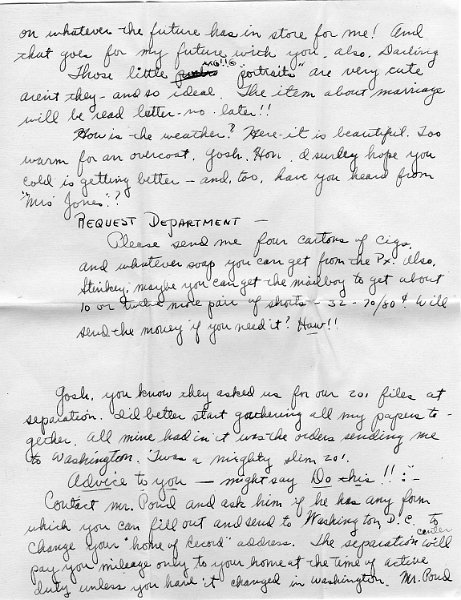 on whatever the future has in store for me! And
that goes for my future with you, also, Darling
Those little "portraits" are very cute
aren't they - and so ideal. The item about marriage
will be read later - no later!!
How is the weather? Here it is beautiful. Too
warm for an overcoat. Gosh, Hon, I surley hope you
cold is getting better - and, too, have you heard from
"Mrs Jones"?
REQUEST DEPARTMENT -
Please send me four cartons of cigs.
and whatever soap you can get from the Px. Also,
Stinkey, maybe you can get the mailboy to get about
10 or more pair of shorts - 32 - 70/80¢ Will
send the money if you need it? Haw!!
Gosh, you know they asked us for our 201 files at
separation. I'd better start gathering all my papers to-
gether. All mine had in it was the orders sending me
to Washington. 'Twas a mighty slim 201.
Advice to you - might say Do this!! :-
Contact Mr. Poud and ask him if he has any form
which you can fill out and send to Washington D.C. to
change your "home of Record" address. The separation center will
pay you mileage only to your home at the time of active
duty unless you have it changed in Washington. Mr. Poud